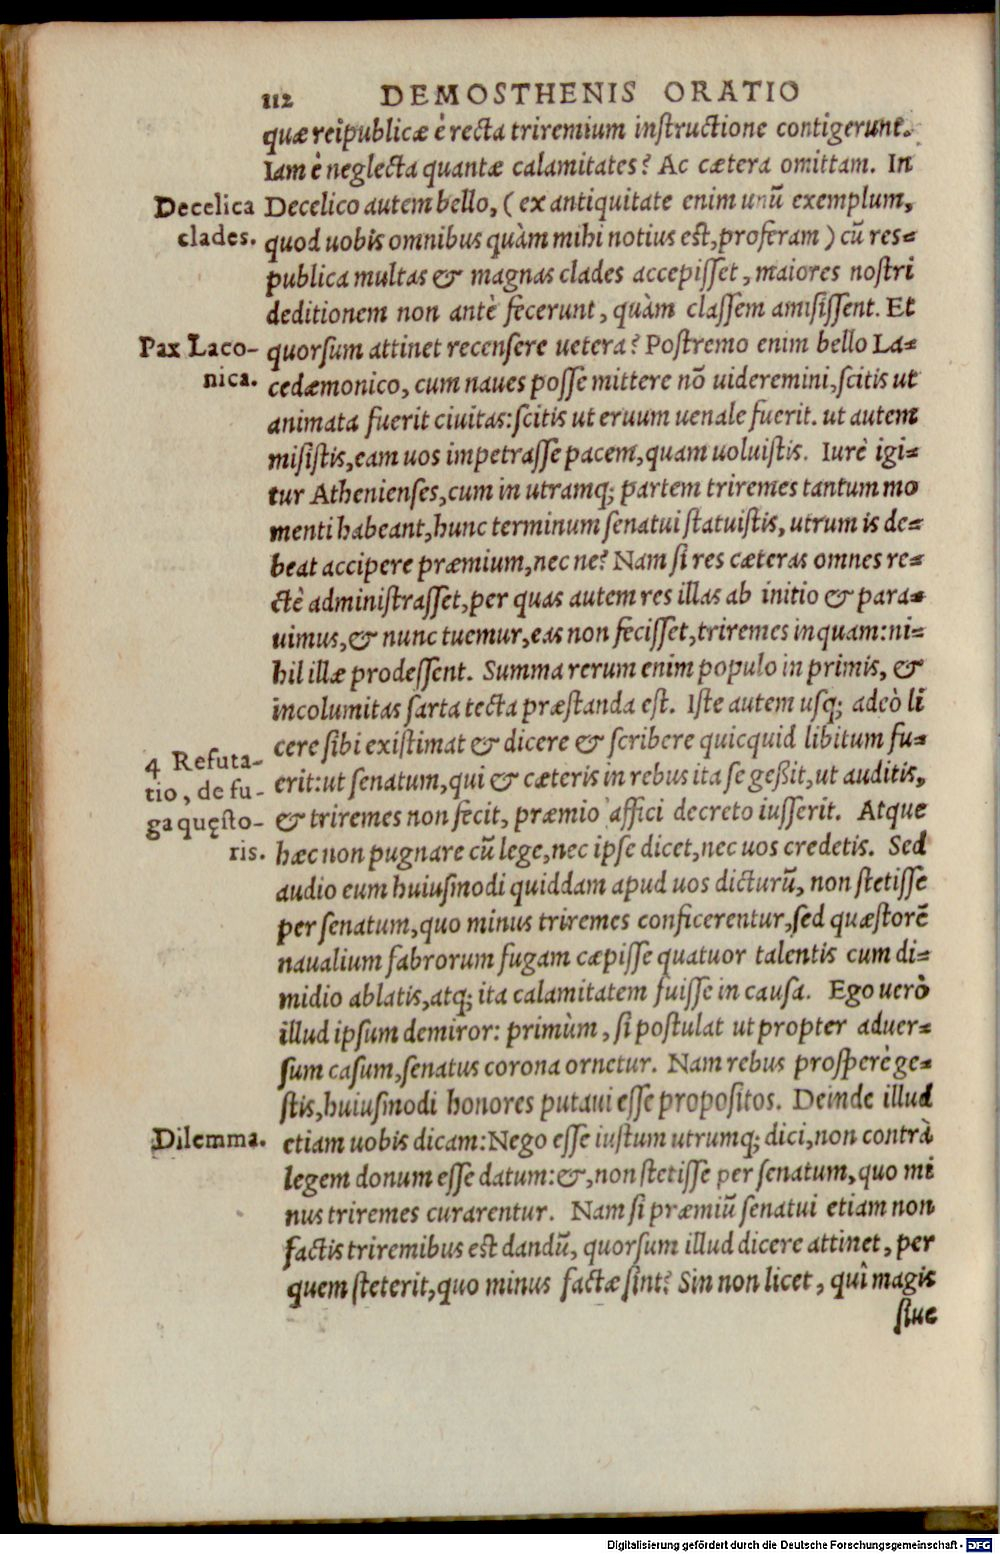 112 DEMOSTHENIS ORATIO
quæ reipublicæ è recta triremium instructione contigerunt.
Iam è neglecta quantæ calamitates? Ac cætera omittam. In
Decelica Decelico autem bello, (ex antiquitate enim unũ exemplum,
clades. quod uobis omnibus quàm mihi notius est, proferam) cũ res-
publica multas & magnas clades accepisset, maiores nostri
deditionem non antè fecerunt, quàm classem amisissent. Et
Pax Laco- quorsum attinet recensere uetera? Postremo enim bello La-
nica. cedæmonico, cum naues posse mittere nõ uideremini, scitis ut
animata fuerit ciuitas: scitis ut eruum uenale fuerit. ut autem
misistis, eam uos impetrasse pacem, quam uoluistis. Iurè igi-
tur Athenienses, cum in utramq; partem triremes tantum mo
menti habeant, hunc terminum senatui statuistis, utrum is de-
beat accipere præmium, nec ne? Nam si res cæteras omnes re-
ctè administrasset, per quas autem res illas ab initio & para-
uimus, & nunc tuemur, eas non fecisset, triremes inquam: ni-
hil illæ prodessent. Summa rerum enim populo in primis, &
incolumitas sarta tecta præstanda est. Iste autem usq; adeò li
cere sibi existimat & dicere & scribere quicquid libitum fu-
4 Refuta- erit: ut senatum, qui & cæteris in rebus ita se geßit, ut auditis,
tio, de fu- & triremes non fecit, præmio affici decreto iusserit. Atque
ga quęsto- hæc non pugnare cũ lege, nec ipse dicet, nec uos credetis. Sed
ris. audio eum huiusmodi quiddam apud uos dicturũ, non stetisse
per senatum, quo minus triremes conficerentur, sed quæstorẽ
naualium fabrorum fugam cæpisse quatuor talentis cum di-
midio ablatis, atq; ita calamitatem fuisse in causa. Ego uerò
illud ipsum demiror: primùm, si postulat ut propter aduer-
sum casum, senatus corona ornetur. Nam rebus prosperè ge-
stis, huiusmodi honores putaui esse propositos. Deinde illud
Dilemma. etiam uobis dicam: Nego esse iustum utrumq; dici, non contrà
legem donum esse datum: &, non stetisse per senatum, quo mi
nus triremes curarentur. Nam si præmiũ senatui etiam non
factis triremibus est dandũ, quorsum illud dicere attinet, per
quem steterit, quo minus factæ sint? Sin non licet, quî magis
siue
Digitalisierung gefördert durch die Deutsche Forschungsgemeinschaft - DFG